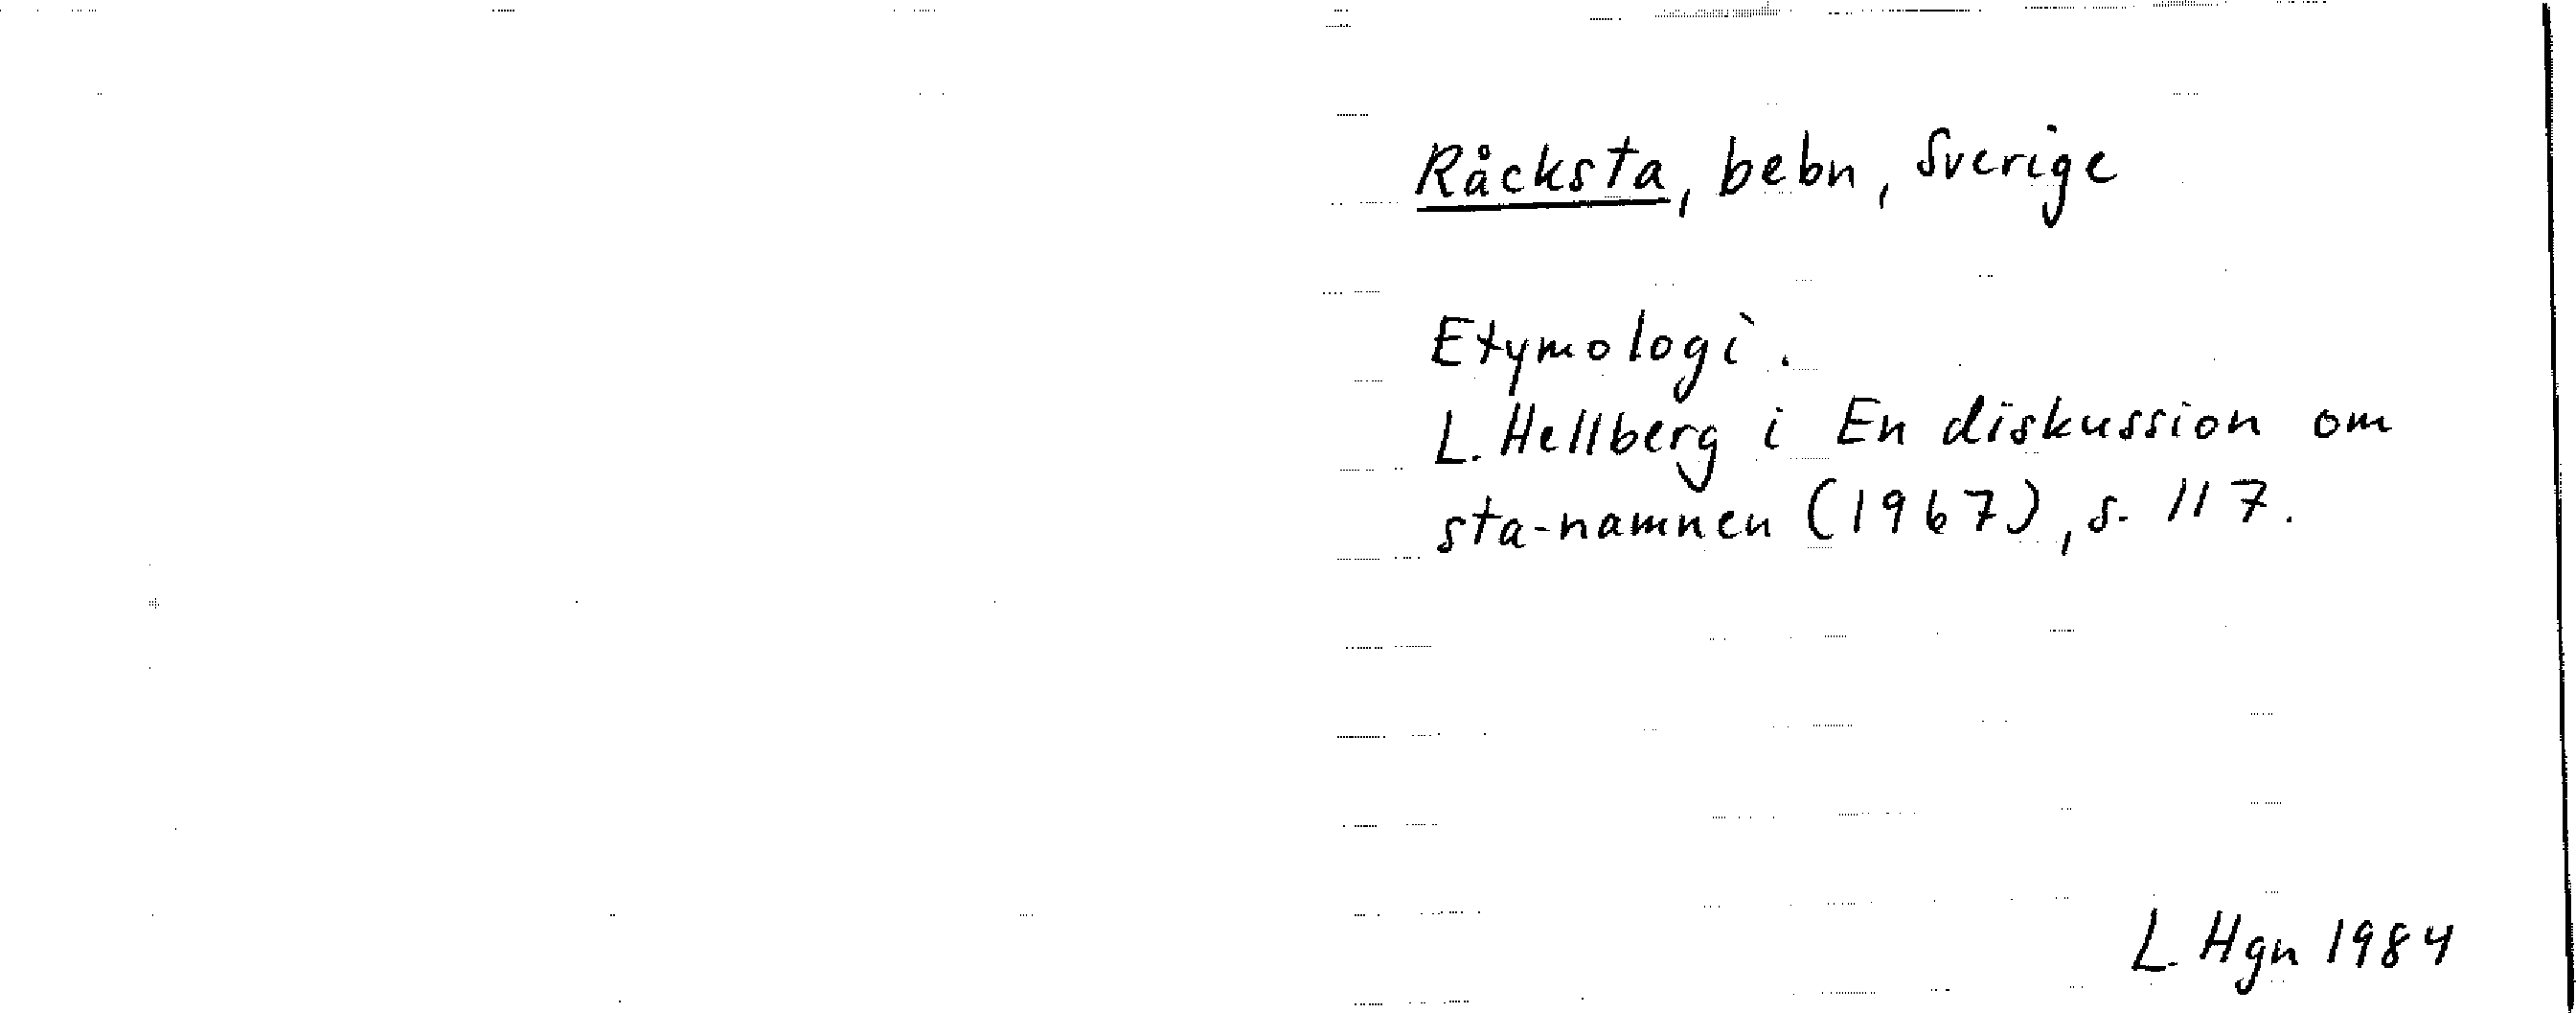 Råcksta, bebn, Sverige
Etymologi.
L. Hellberg i En diskussion om
sta-namnen (1967), s. 117.
L. Hgn 1984